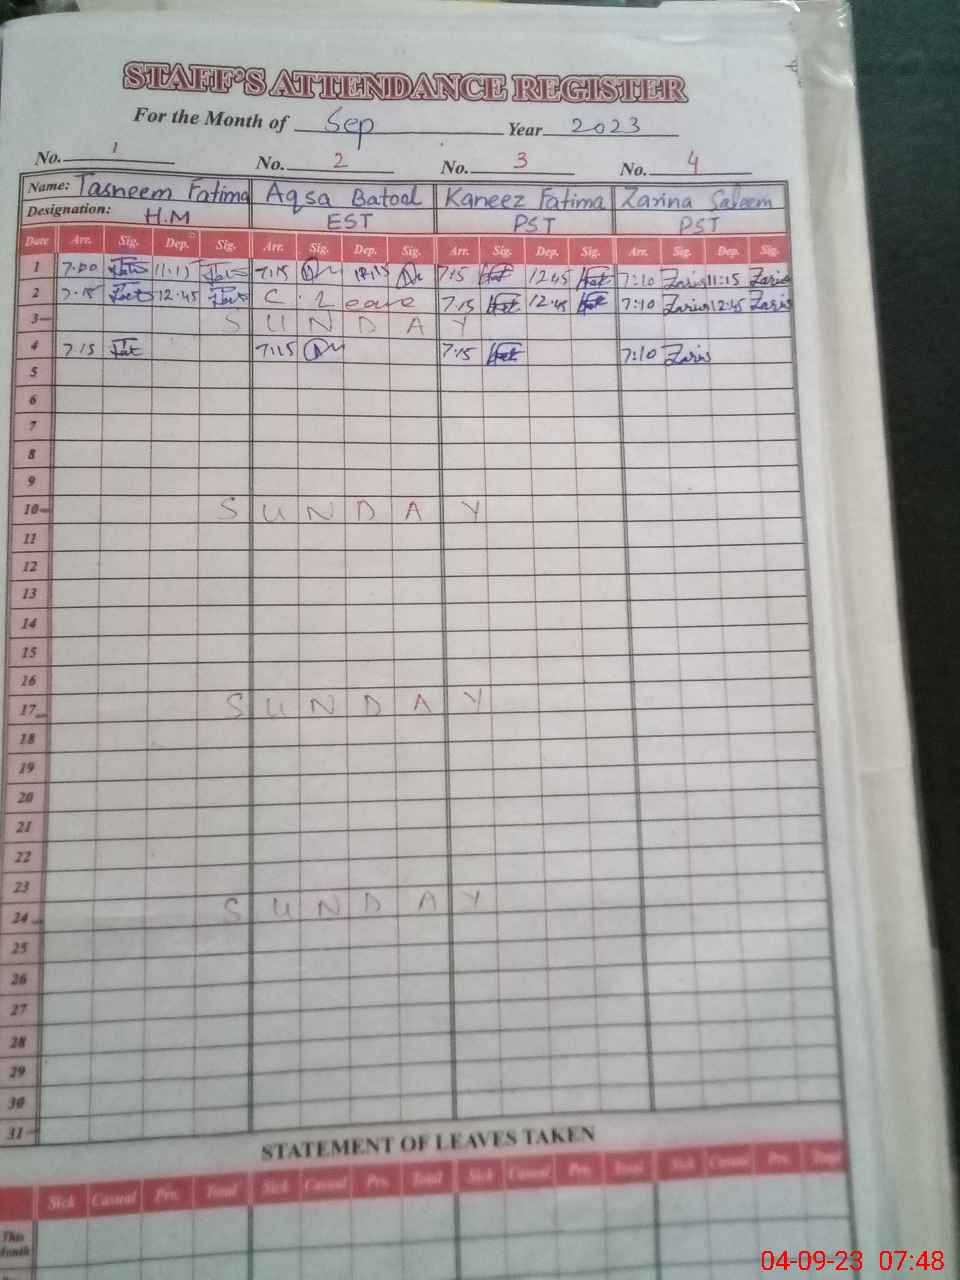 STAFF'S ATTENDANCE REGISTER
For the Month of Sep Year 2023
No. 1 No. 2 No. 3 No. 4
Name: Tasneem Fatima Aqsa Batool Kaneez Fatima Zarina Saleem
Designation: H.M EST PST PST
Date Arr. Sig. Dep. Sig. Arr. Sig. Dep. Sig. Arr. Sig. Dep. Sig. Arr. Sig. Dep. Sig.
1 7.00 11:15 7.15 12.15 7.15 12.45 7:10 11:15
2 7.15 12.45 C. Leave 7.15 12.45 7:10 12:45
3 SUNDAY
4 7.15 7.15 7.15 7:10
5
6
7
8
9
10 SUNDAY
11
12
13
14
15
16
17 SUNDAY
18
19
20
21
22
23
24 SUNDAY
25
26
27
28
29
30
31
STATEMENT OF LEAVES TAKEN
Sick Casual Prv. Total Sick Casual Prv. Total Sick Casual Prv. Total Sick Casual Prv. Total
This
Month
04-09-23 07:48